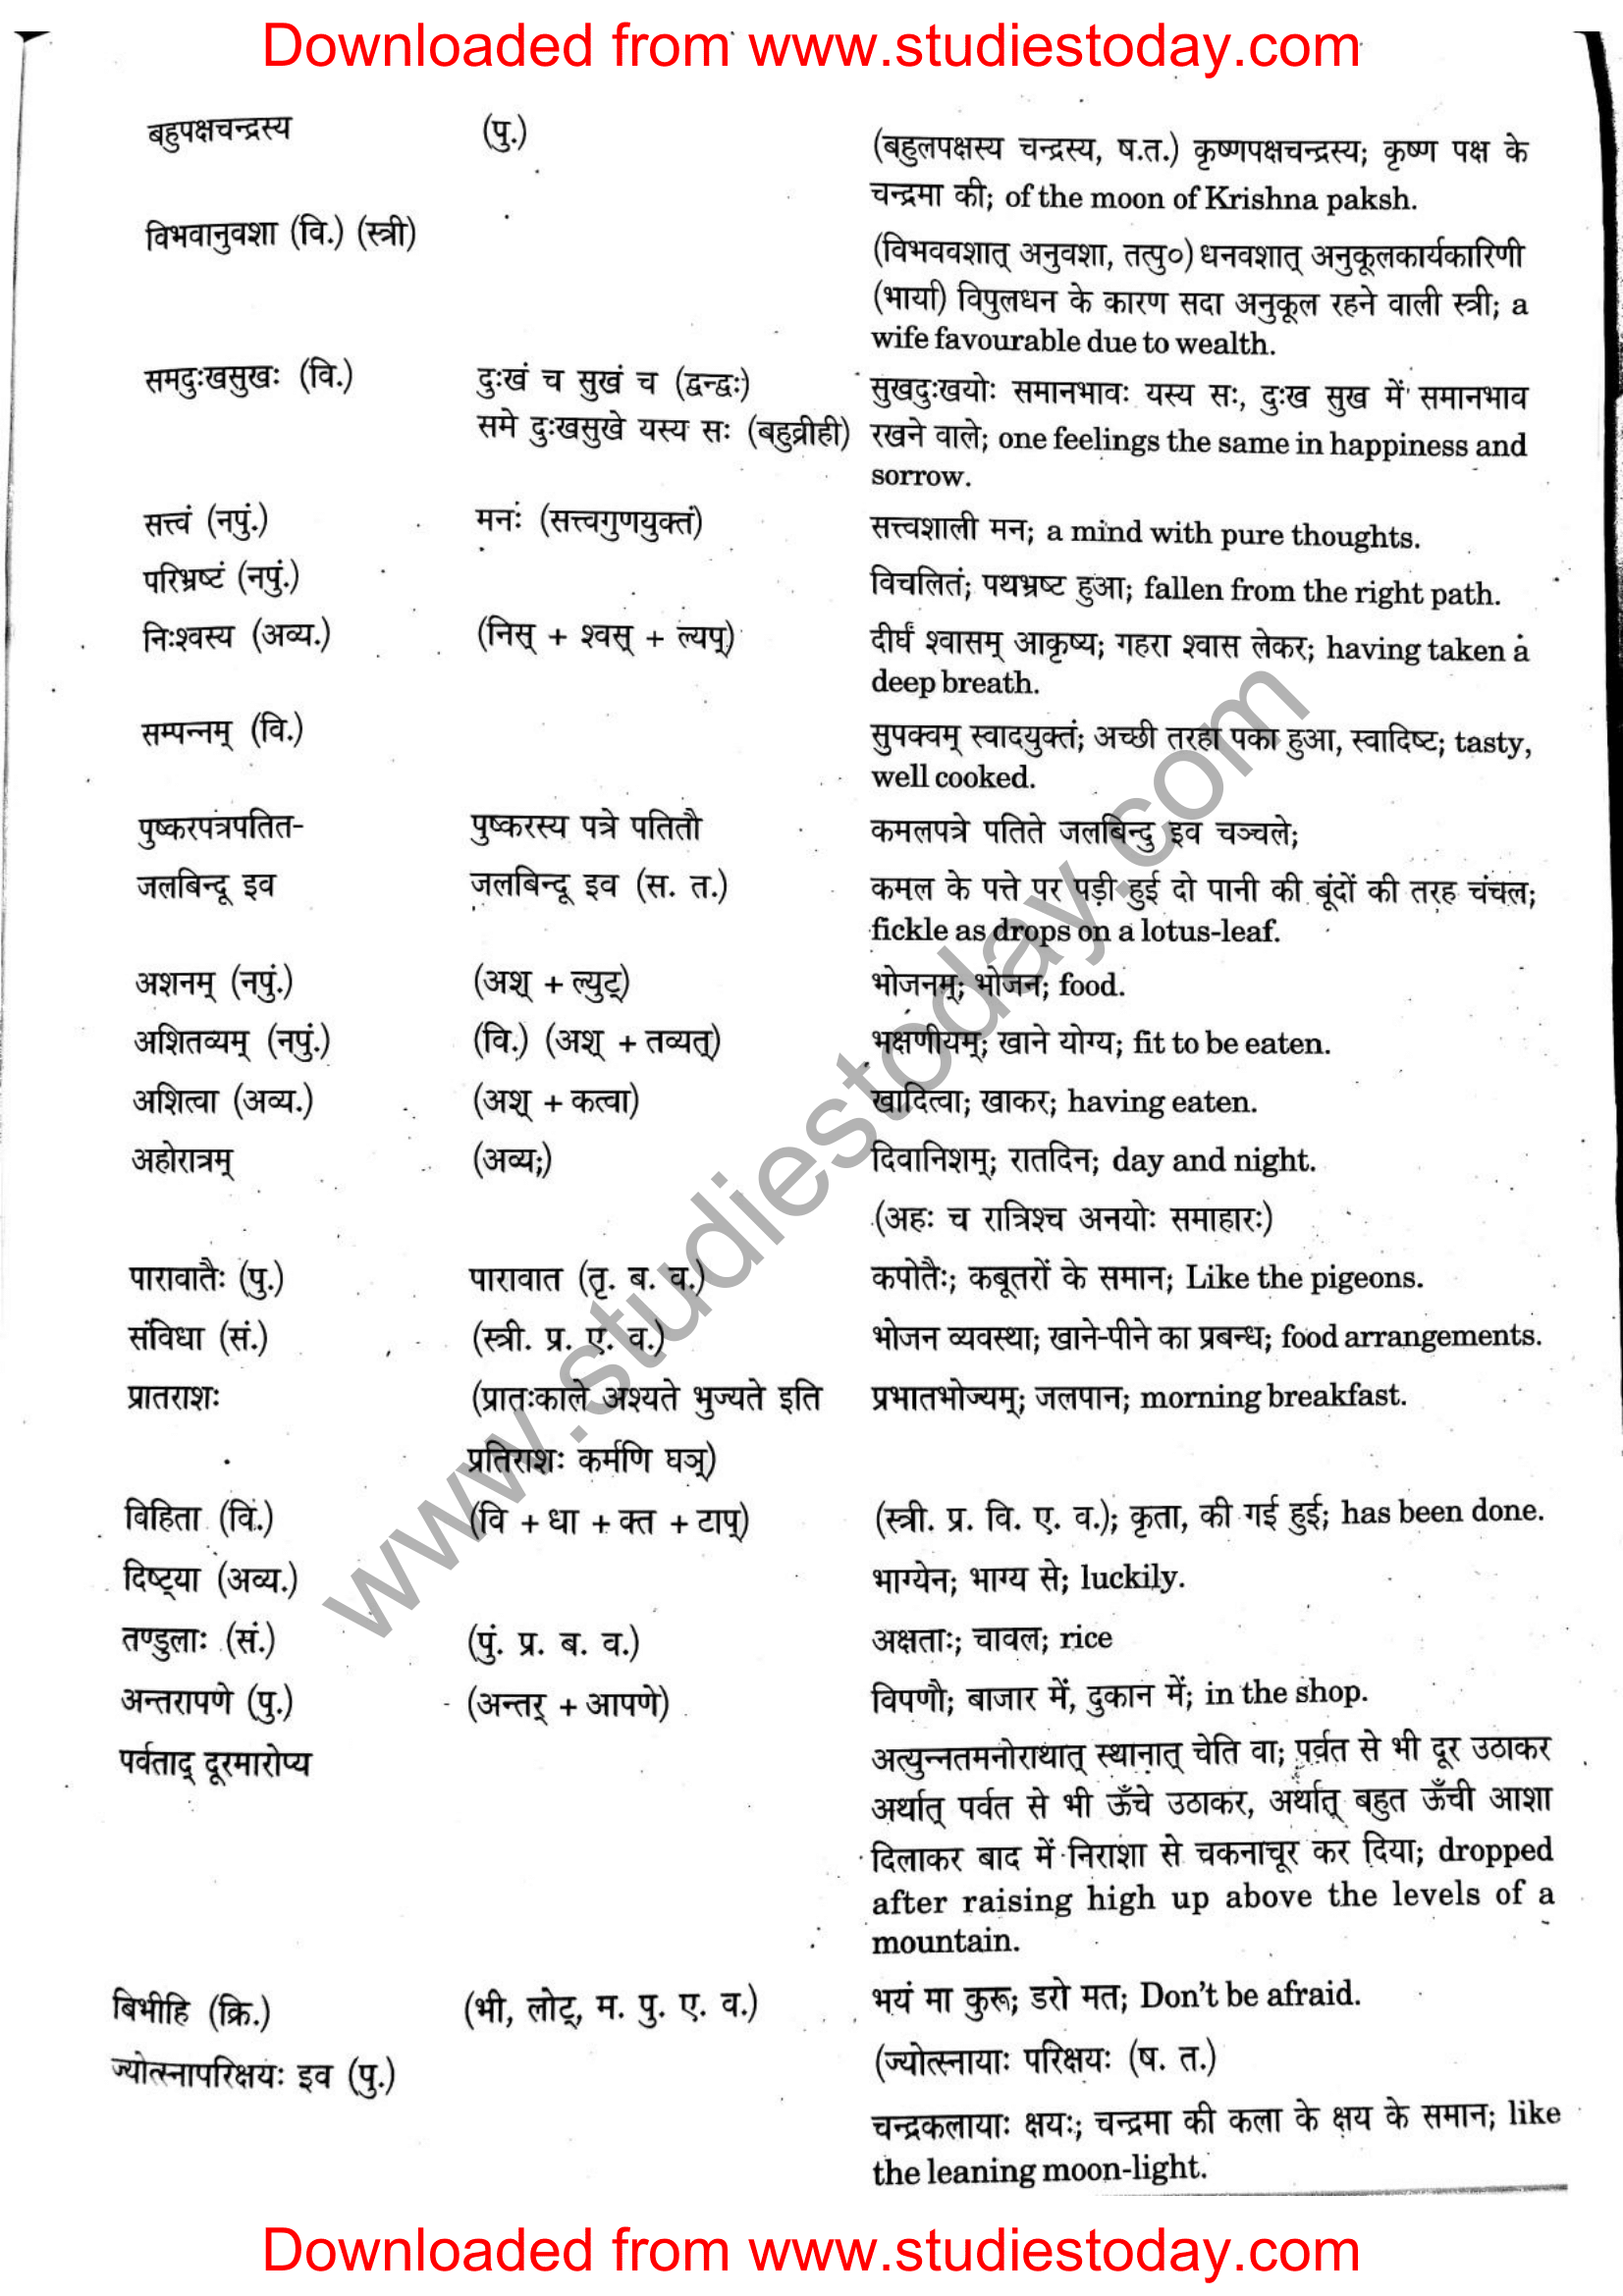 Downloaded from www.studiestoday.com
बहुपक्षचन्द्रस्य (पु.) (बहुलपक्षस्य चन्द्रस्य, ष.त.) कृष्णपक्षचन्द्रस्य; कृष्ण पक्ष के
चन्द्रमा की; of the moon of Krishna paksh.
विभवानुवशा (वि.) (स्त्री) (विभववशात् अनुवशा, तत्पु०) धनवशात् अनुकूलकार्यकारिणी
(भार्या) विपुलधन के कारण सदा अनुकूल रहने वाली स्त्री; a
wife favourable due to wealth.
समदुःखसुखः (वि.) दुःखं च सुखं च (द्वन्द्वः) सुखदुःखयोः समानभावः यस्य सः, दुःख सुख में समानभाव
समे दुःखसुखे यस्य सः (बहुव्रीही) रखने वाले; one feelings the same in happiness and
sorrow.
सत्त्वं (नपुं.) मनः (सत्त्वगुणयुक्तं) सत्त्वशाली मन; a mind with pure thoughts.
परिभ्रष्टं (नपुं.) विचलितं; पथभ्रष्ट हुआ; fallen from the right path.
निःश्वस्य (अव्य.) (निस् + श्वस् + ल्यप्) दीर्घं श्वासम् आकृष्य; गहरा श्वास लेकर; having taken a
deep breath.
सम्पन्नम् (वि.) सुपक्वम् स्वादयुक्तं; अच्छी तरहा पका हुआ, स्वादिष्ट; tasty,
well cooked.
पुष्करपत्रपतित- पुष्करस्य पत्रे पतितौ कमलपत्रे पतिते जलबिन्दु इव चञ्चले;
जलबिन्दू इव जलबिन्दू इव (स. त.) कमल के पत्ते पर पड़ी हुई दो पानी की बूंदों की तरह चंचल;
fickle as drops on a lotus-leaf.
अशनम् (नपुं.) (अश् + ल्युट्) भोजनम्; भोजन; food.
अशितव्यम् (नपुं.) (वि.) (अश् + तव्यत्) भक्षणीयम्; खाने योग्य; fit to be eaten.
अशित्वा (अव्य.) (अश् + कत्वा) खादित्वा; खाकर; having eaten.
अहोरात्रम् (अव्य;) दिवानिशम्; रातदिन; day and night.
(अहः च रात्रिश्च अनयोः समाहारः)
पारावातैः (पु.) पारावात (तृ. ब. व.) कपोतैः; कबूतरों के समान; Like the pigeons.
संविधा (सं.) (स्त्री. प्र. ए. व.) भोजन व्यवस्था; खाने-पीने का प्रबन्ध; food arrangements.
प्रातराशः (प्रातःकाले अश्यते भुज्यते इति प्रभातभोज्यम्; जलपान; morning breakfast.
प्रतिराशः कर्मणि घञ्)
विहिता (वि.) (वि + धा + क्त + टाप्) (स्त्री. प्र. वि. ए. व.); कृता, की गई हुई; has been done.
दिष्ट्या (अव्य.) भाग्येन; भाग्य से; luckily.
तण्डुलाः (सं.) (पुं. प्र. ब. व.) अक्षताः; चावल; rice
अन्तरापणे (पु.) (अन्तर् + आपणे) विपणौ; बाजार में, दुकान में; in the shop.
पर्वताद् दूरमारोप्य अत्युन्नतमनोराथात् स्थानात् चेति वा; पर्वत से भी दूर उठाकर
अर्थात् पर्वत से भी ऊँचे उठाकर, अर्थात् बहुत ऊँची आशा
दिलाकर बाद में निराशा से चकनाचूर कर दिया; dropped
after raising high up above the levels of a
mountain.
बिभीहि (क्रि.) (भी, लोट्, म. पु. ए. व.) भयं मा कुरू; डरो मत; Don't be afraid.
ज्योत्स्नापरिक्षयः इव (पु.) (ज्योत्स्नायाः परिक्षयः (ष. त.)
चन्द्रकलायाः क्षयः; चन्द्रमा की कला के क्षय के समान; like
the leaning moon-light.
www.studiestoday.com
Downloaded from www.studiestoday.com